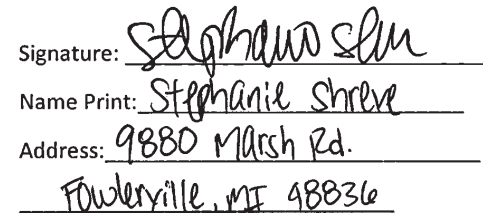 Signature: Stephanie
Name Print: Stephanie Shreve
Address: 9880 Marsh Rd.
Fowlerville, MI 48836